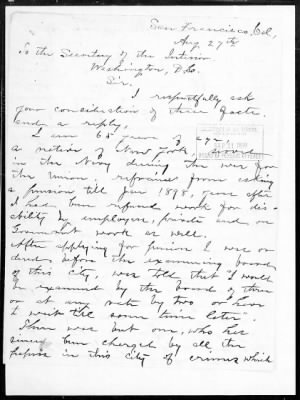 San Francisco, Cal,
Aug 27th
To the Secretary of the Interior
Washington, D.C.
Sir.
I respectfully ask
your consideration of these facts
and a reply.
I am 65 years of age,
a native of New York, served
in the Navy during the war for
the Union, refrained from asking
a pension till Jan 1898, years after
I had been refused work for dis-
ability by employers, private and on
Government work as well.
After applying for pension I was or-
dered before the examining board
of this city, was told that I would
be examined by the board of three
or at any rate by two or have
to wait till some time later.
There was but one, who has
since been charged by all the
papers in this city of crimes which